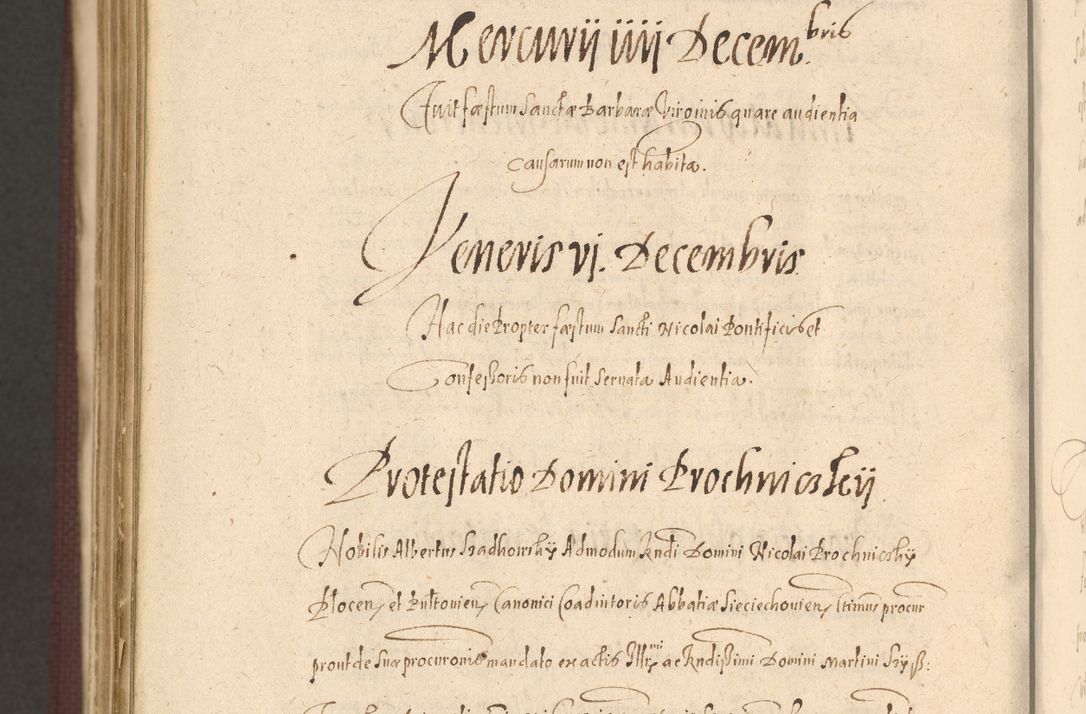 Mercurii iiii Decembris
Fuit fæstum Sanctæ Barbaræ Virginis quare audientia
causarum non est habita.
Veneris vi. Decembris
Hac die Propter fæstum Sancti Nicolai Pontificis et
Confessoris non fuit Servata Audientia.
Protestatio Domini Prochniczkij
Nobilis Albertus Szadkowsky Admodum Rndi Domini Nicolai Prochniczky
Plocen et Pultovien Canonici Coadiutoris Abbatiæ Sieciechovien ltimus procur
prout de suæ procuronis mandato ex actis Illrmi ac Rndissimi Domini Martini